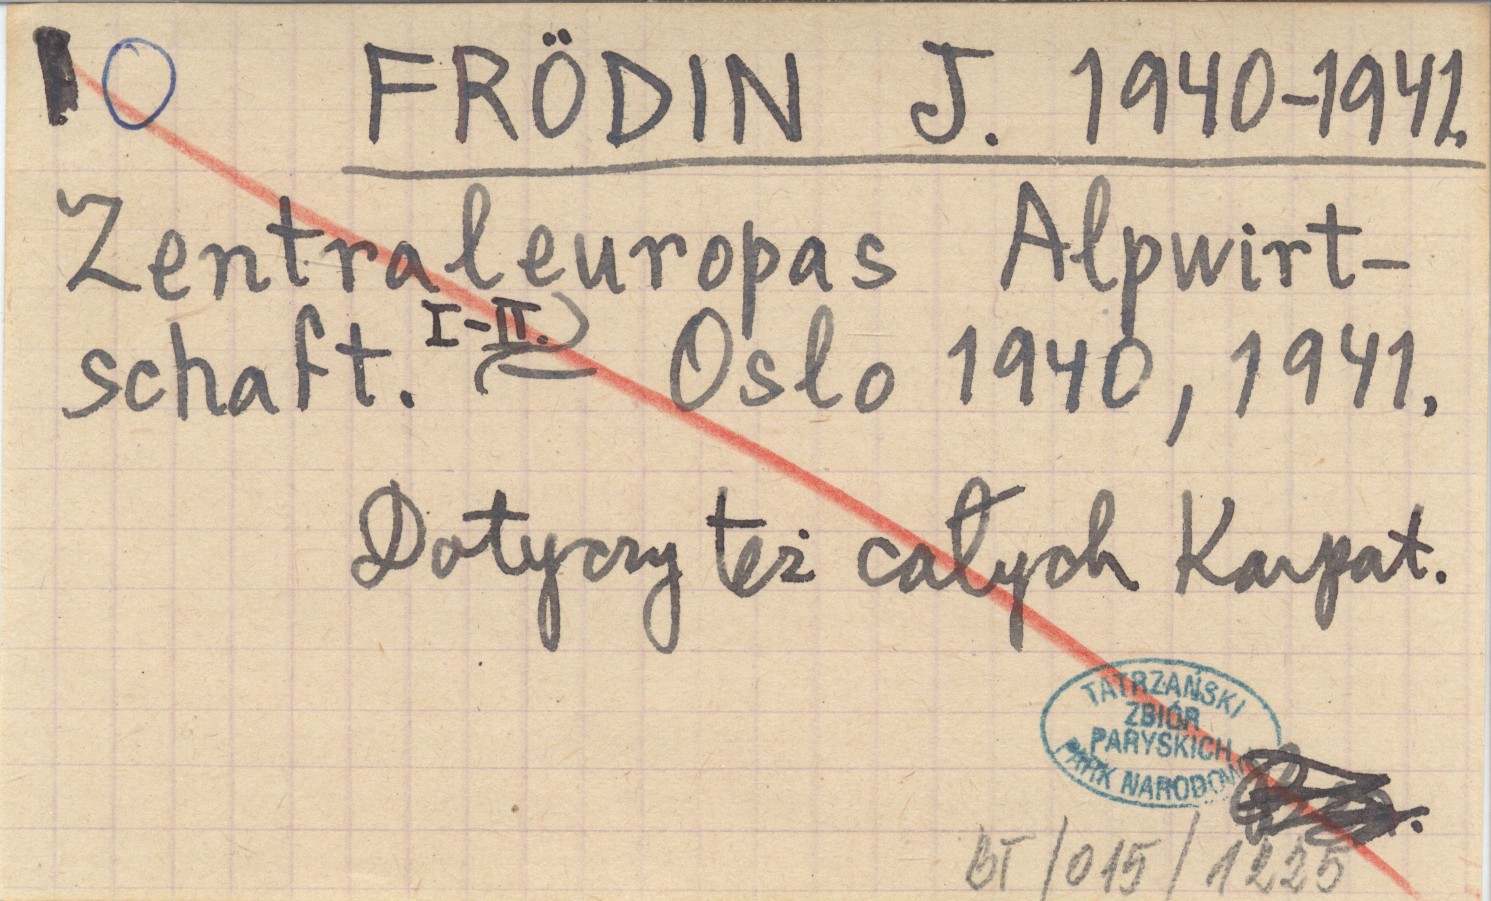 O FRÖDIN J. 1940-1941.
Zentraleuropas Alpwirt-
schaft. I-II. Oslo 1940, 1941.
Dotyczy też całych Karpat.
TATRZAŃSKI
ZBIÓR
PARYSKICH
PARK NARODOWY
BT/015/1225